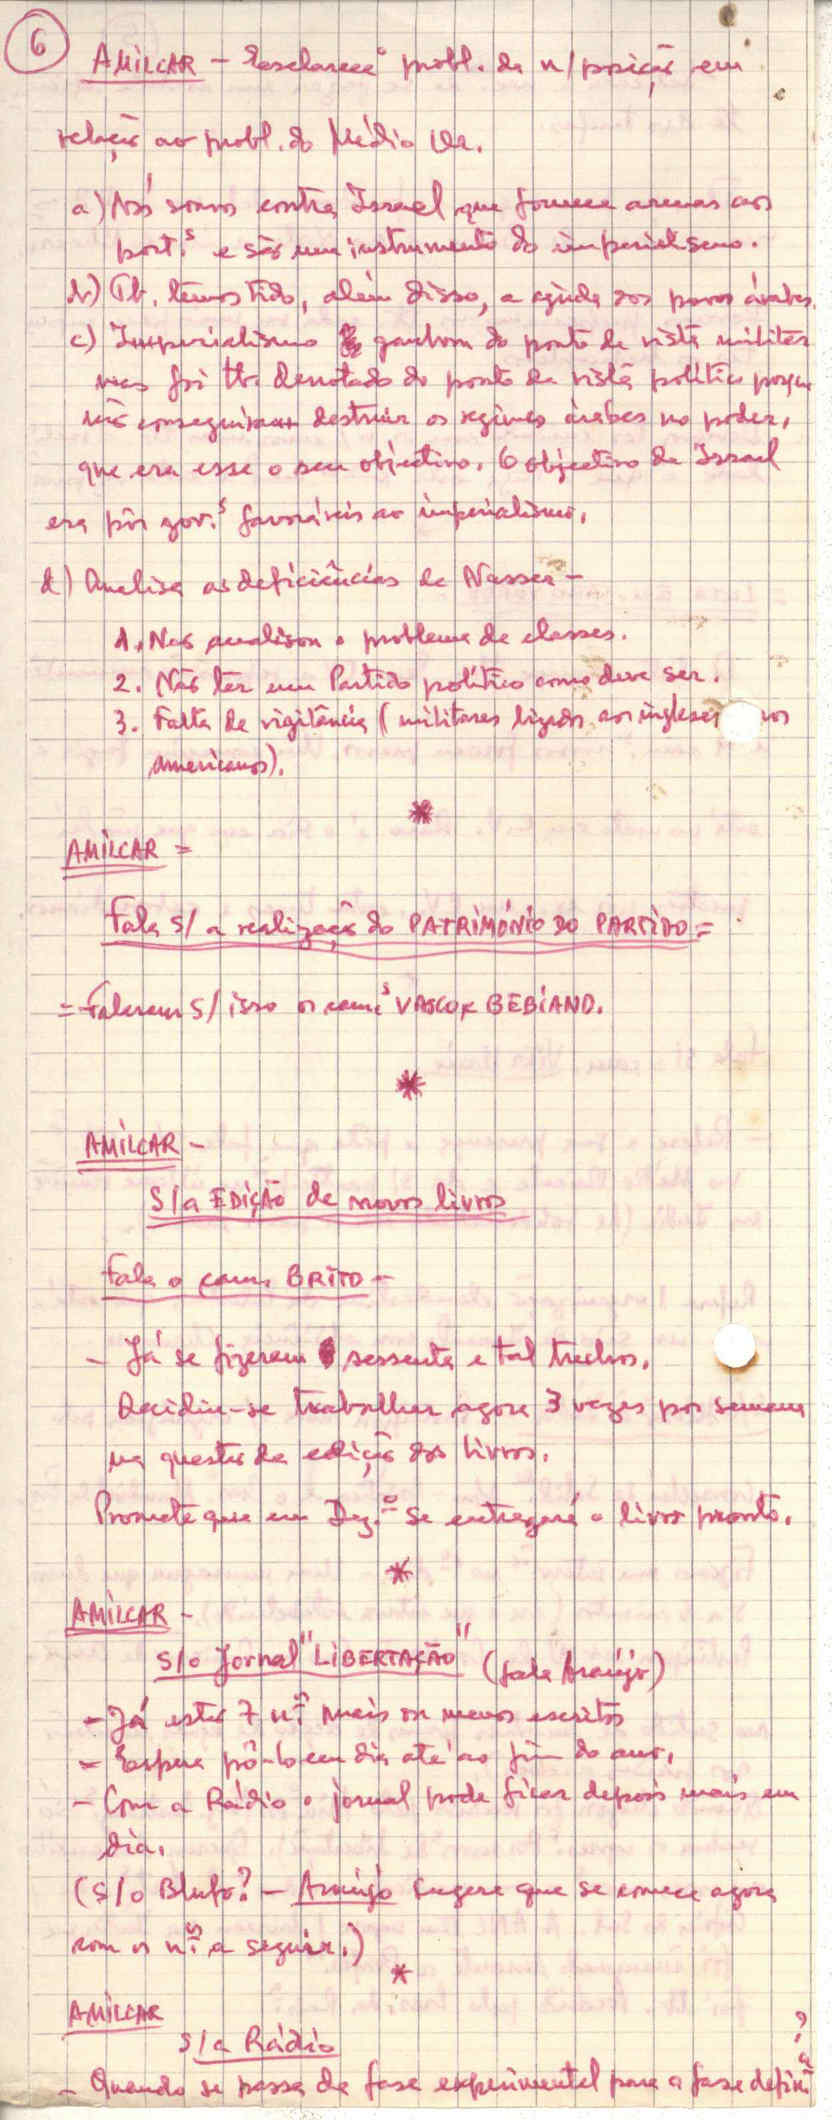 6
AMILCAR - Esclarece probl. da n/posição em
relação ao probl. do Médio Or.
a) Nós somos contra Israel que fornece armas aos
port.s e são um instrumento do imperialismo.
b) Tb. temos tido, além disso, a ajuda dos povos árabes.
c) Imperialismo ganhou do ponto de vista militar
mas foi tb. derrotado do ponto de vista político porque
não conseguiram destruir os regimes árabes no poder,
que era esse o seu objectivo. O objectivo de Israel
era pôr gov.s favoráveis ao imperialismo.
d) Analisa as deficiências de Nasser -
1. Não analisou o problema de classes.
2. Não ter um Partido político como deve ser.
3. Falta de vigilância (militares ligados aos ingleses
americanos).
*
AMILCAR =
Fala s/ a realização do PATRIMÓNIO DO PARTIDO =
= Falaram s/ isso os cam.s VASCO e BEBIANO.
*
AMILCAR -
S/a EDIÇÃO de novos livros
Fala o cam. BRITO -
- Já se fizeram sessenta e tal trechos.
Decidiu-se trabalhar agora 3 vezes por semana
na questão da edição dos livros.
Promete que em Dez.o se entregará o livro pronto.
*
AMILCAR -
S/o Jornal "LIBERTAÇÃO" (fala Araújo)
- Já estão 7 n.os mais ou menos escritos
- Espera pô-lo em dia até ao fim do ano.
- Com a Rádio o jornal pode ficar depois mais em
dia.
(S/o Blufo? - Araújo sugere que se comece agora
com os n.os a seguir.)
*
AMILCAR
S/a Rádio
- Quando se passa da fase experimental para a fase definit.a?